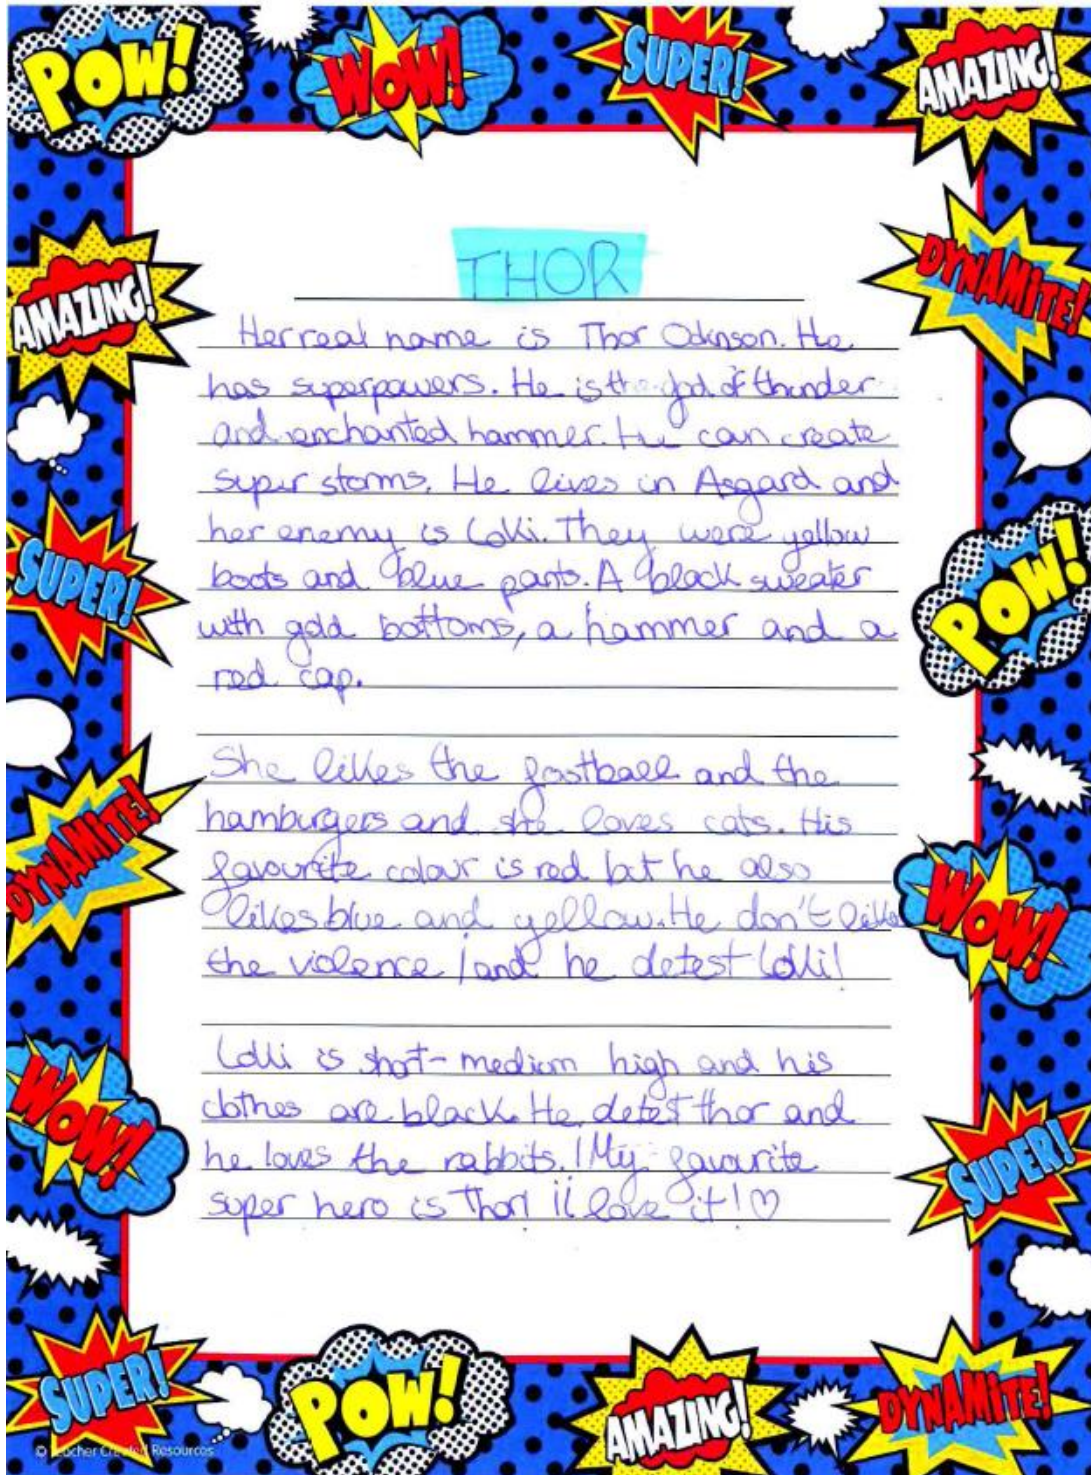 POW!
WOW!
SUPER!
AMAZING!
AMAZING!
DYNAMITE!
SUPER!
POW!
DYNAMITE!
WOW!
WOW!
SUPER!
THOR
Her real name is Thor Odinson. He
has superpowers. He is the god of thunder
and enchanted hammer. He can create
super storms. He lives in Asgard and
her enemy is Lokki. They were yellow
boots and blue pants. A black sweater
with gold bottoms, a hammer and a
red cap.
She likes the football and the
hamburgers and she loves cats. His
favourite colour is red but he also
likes blue and yellow. He don't like
the violence ¡and he detest Lokki!
Lokki is short-medium high and his
clothes are black. He detest thor and
he loves the rabbits. ¡My favourite
super hero is Thor! ¡i love it!♡
SUPER!
POW!
AMAZING!
DYNAMITE!
© Teacher Created Resources